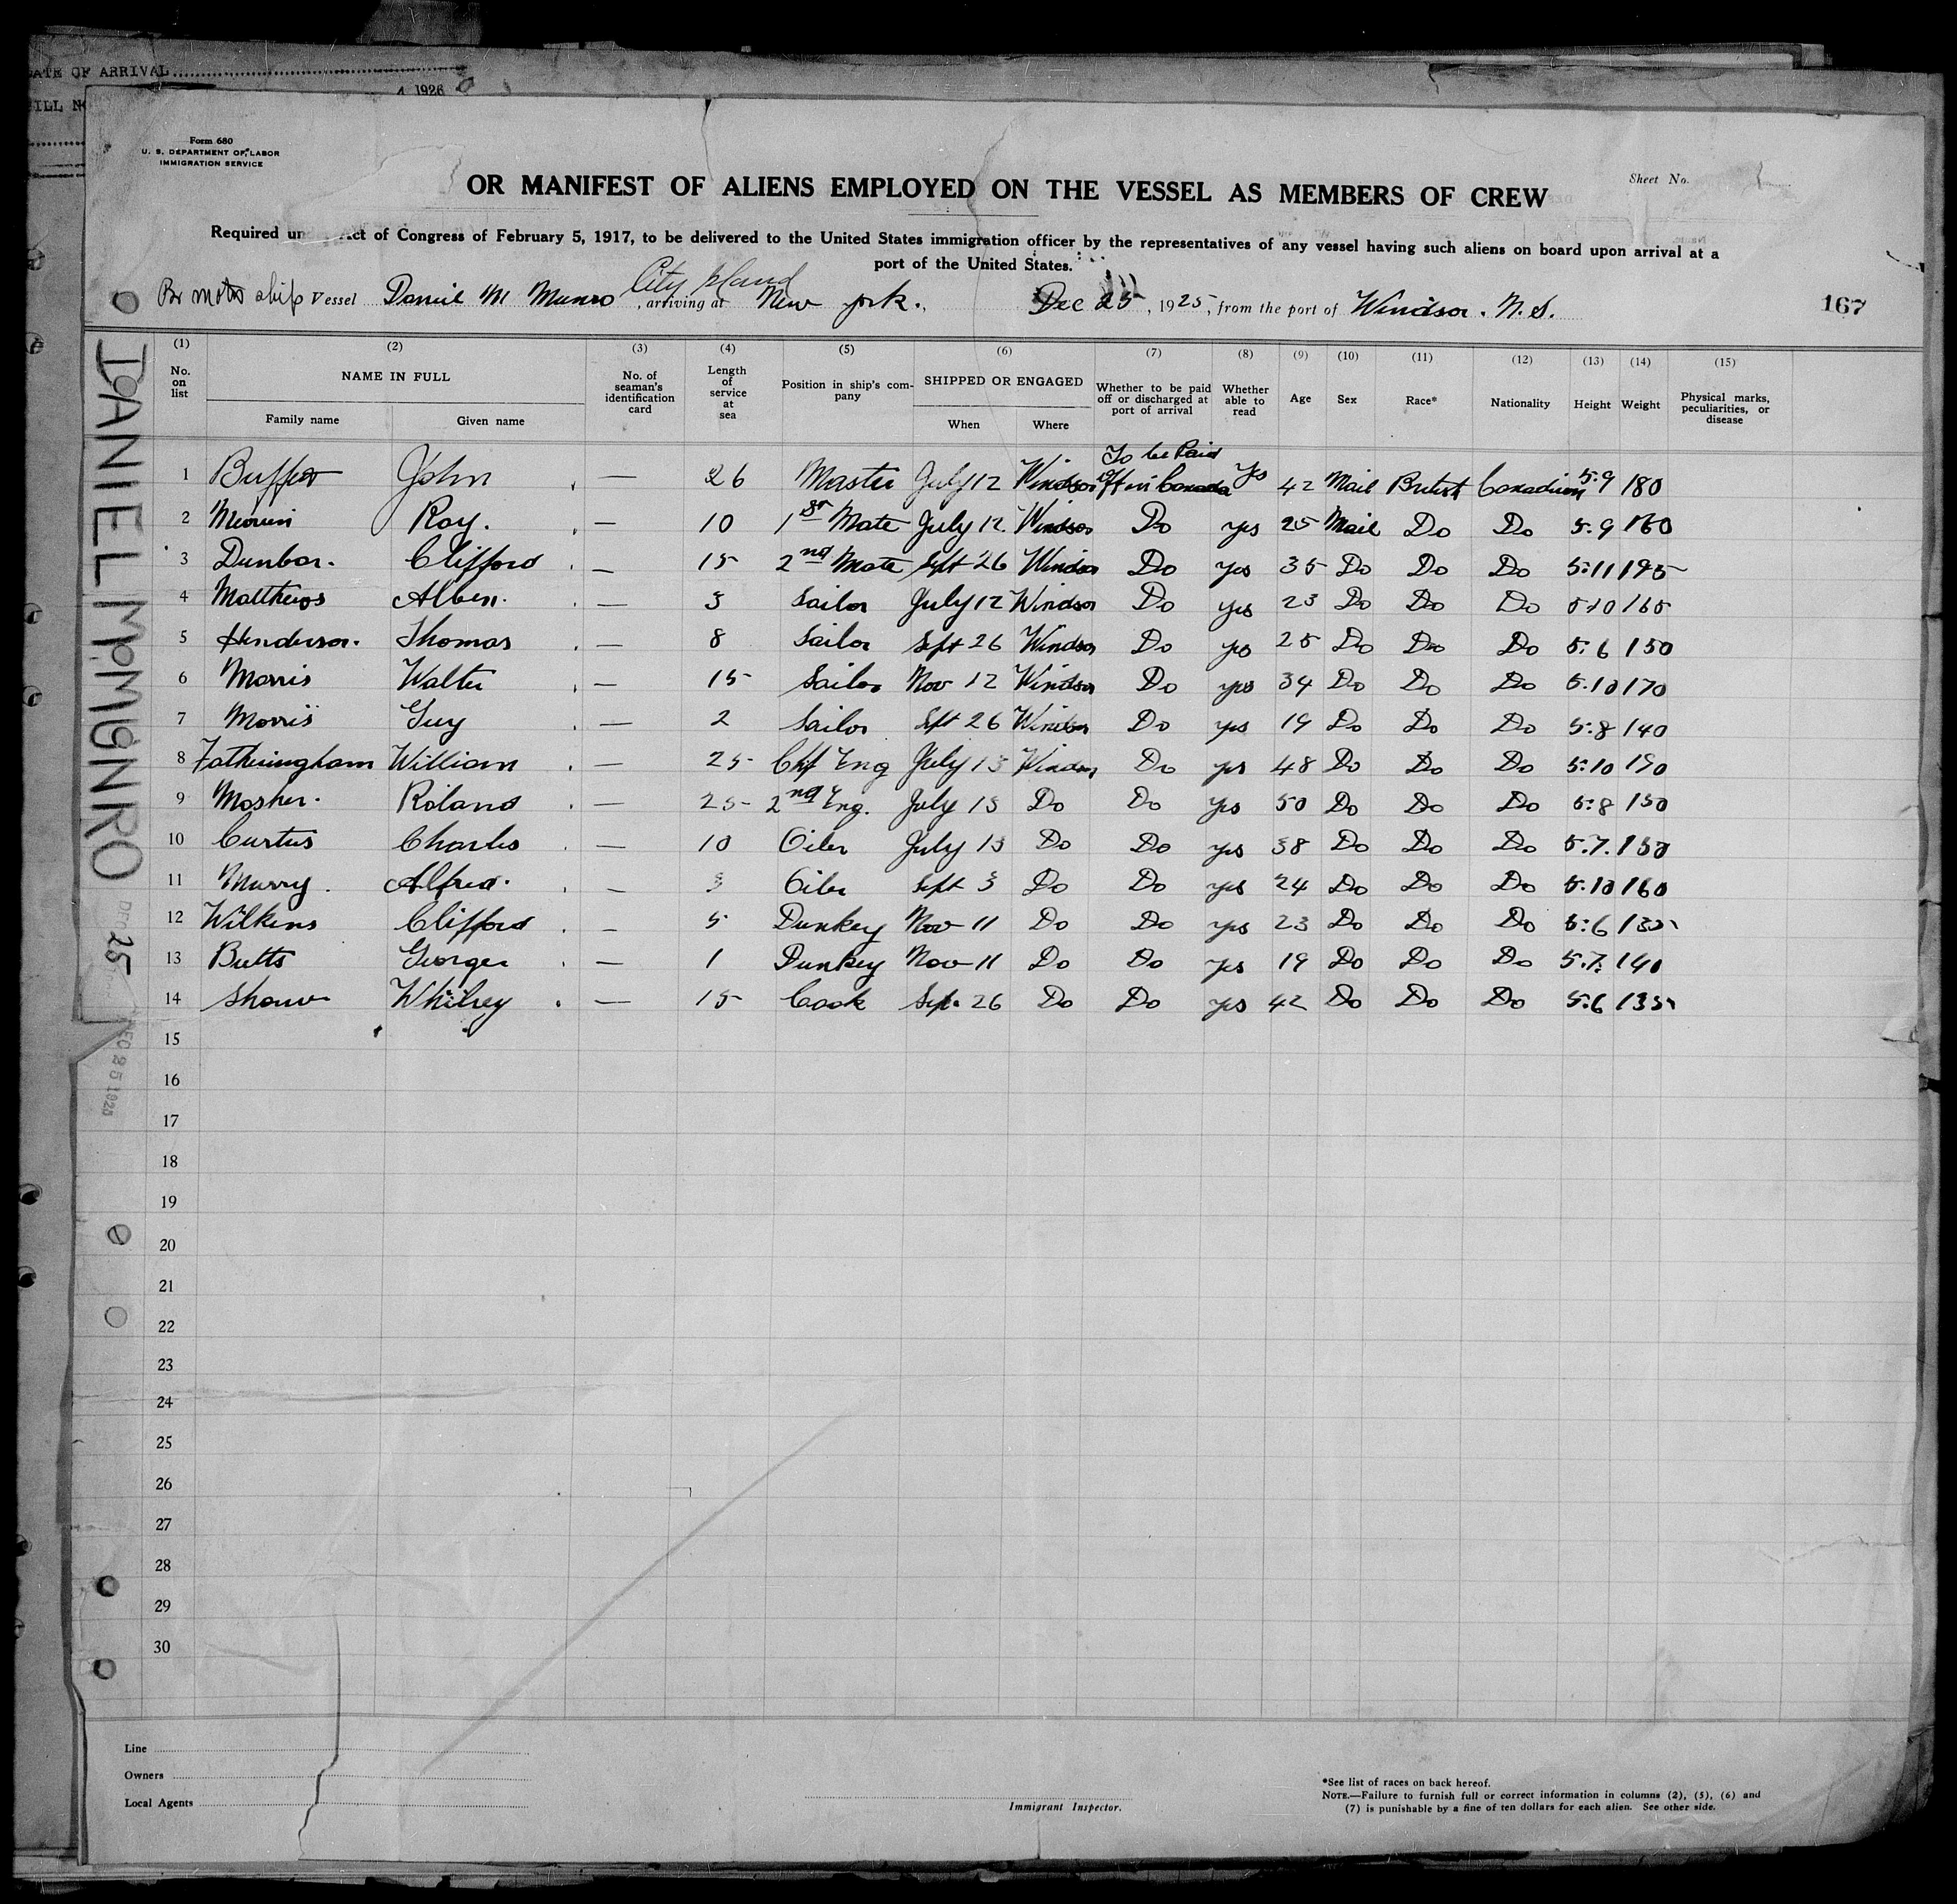 DATE OF ARRIVAL
1926
Form 680
U. S. DEPARTMENT OF LABOR
IMMIGRATION SERVICE
Sheet No.
OR MANIFEST OF ALIENS EMPLOYED ON THE VESSEL AS MEMBERS OF CREW
Required Act of Congress of February 5, 1917, to be delivered to the United States immigration officer by the representatives of any vessel having such aliens on board upon arrival at a
port of the United States.
City Island
Br motor ship Vessel Daniel M Munro, arriving at New York., Dec 25, 1925, from the port of Windsor. N.S.
167
(1) (2) (3) (4) (5) (6) (7) (8) (9) (10) (11) (12) (13) (14) (15)
No. on list NAME IN FULL Family name Given name No. of seaman's identification card Length of service at sea Position in ship's company SHIPPED OR ENGAGED When Where Whether to be paid off or discharged at port of arrival Whether able to read Age Sex Race* Nationality Height Weight Physical marks, peculiarities, or disease
To be Paid
1 John — 26 Master July 12 Windsor Off in Canada Yes 42 Mail British Canadian 5.9 180
2 Roy. — 10 1st Mate July 12. Windsor Do yes 25 Mail Do Do 5.9 160
3 Dunbar. Clifford — 15 2nd Mate Sept 26 Windsor Do yes 35 Do Do Do 5:11 195
4 Matthews Alben. — 3 Sailor July 12 Windsor Do yes 23 Do Do Do 5.10 165
5 Henderson. Thomas — 8 Sailor Sept 26 Windsor Do yes 25 Do Do Do 5.6 150
6 Morris Walter — 15 Sailor Nov 12 Windsor Do yes 34 Do Do Do 5.10 170
7 Morris Guy — 2 Sailor Sept 26 Windsor Do yes 19 Do Do Do 5:8 140
8 Fotheringham William — 25 Chf Eng July 13 Windsor Do yes 48 Do Do Do 5:10 190
9 Mosher. Roland — 25 2nd Eng. July 13 Do Do yes 50 Do Do Do 5:8 150
10 Curtus Charles — 10 Oiler July 13 Do Do yes 38 Do Do Do 5.7. 150
11 Murry. Alfred. — 3 Oiler Sept 3 Do Do yes 24 Do Do Do 5.10 160
12 Wilkins Clifford — 5 Dunkey Nov 11 Do Do yes 23 Do Do Do 5:6
13 Butts George — 1 Dunkey Nov 11 Do Do yes 19 Do Do Do 5.7. 140
14 Shaw Whitney — 15 Cook Sept. 26 Do Do yes 42 Do Do Do 5:6 135
15
16
17
18
19
20
21
22
23
24
25
26
27
28
29
30
DANIEL M. MUNRO
DEC 25
DEC 25 1925
Line
Owners
Local Agents
Immigrant Inspector.
*See list of races on back hereof.
NOTE.—Failure to furnish full or correct information in columns (2), (5), (6) and
(7) is punishable by a fine of ten dollars for each alien. See other side.